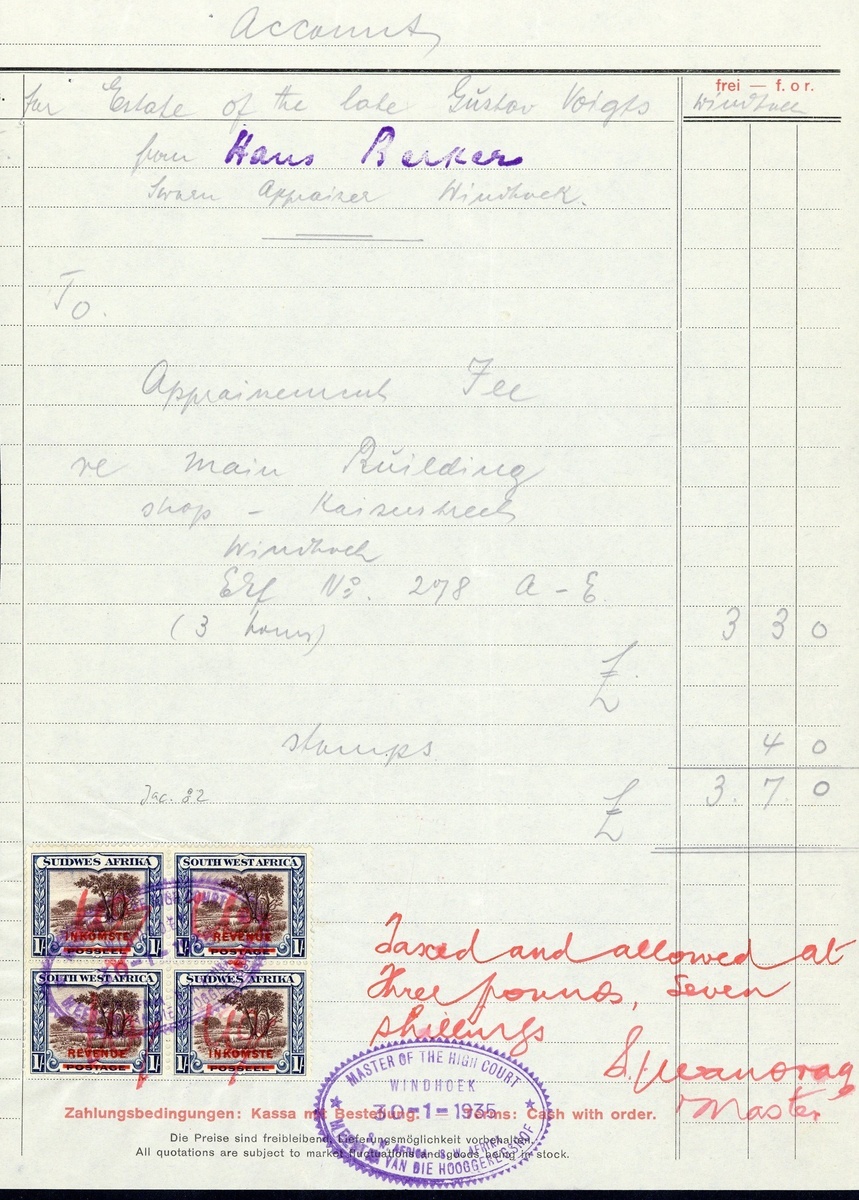 Account
frei — f. o r.
for Estate of the late Gustav Voigts Windhoek
from Hans Berker
Sworn Appraiser Windhoek.
To.
Appraisement Fee
re Main Building
shop - Kaiserstreet
Windhoek
Erf No. 278 A - E
(3 hours) 3 3 0
£
stamps. 4 0
Jac. 82
£ 3. 7. 0
SUIDWES AFRIKA SOUTH WEST AFRICA
INKOMSTE REVENUE
1/- POSSEËL 1/- 1/- POSTAGE 1/-
SOUTH WEST AFRICA SUIDWES AFRIKA
REVENUE INKOMSTE
1/- POSTAGE 1/- 1/- POSSEËL 1/-
Taxed and allowed at
Three pounds, Seven
shillings
Master
MASTER OF THE HIGH COURT
WINDHOEK
30-1-1935
S. W. AFRICA S. W. AFRIKA
MEESTER VAN DIE HOOGGEREGSHOF
Zahlungsbedingungen: Kassa mit Bestellung. — Terms: Cash with order.
Die Preise sind freibleibend, Lieferungsmöglichkeit vorbehalten.
All quotations are subject to market fluctuations and goods being in stock.